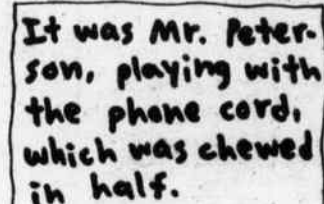 It was Mr. Peter-
son, playing with
the phone cord,
which was chewed
in half.